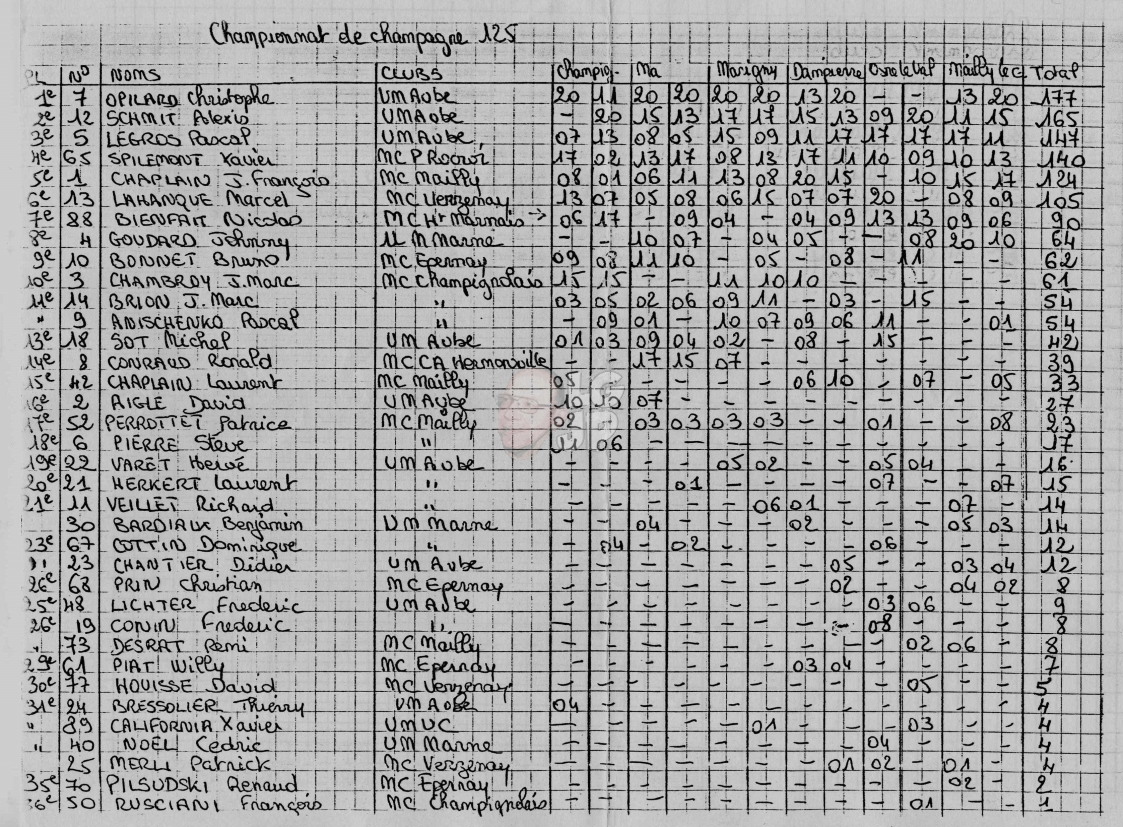 Championnat de champagne 125
PL N° NOMS CLUBS Champig. Ma Marigny Dampierre Osne le Val Mailly le C Total
1e 7 OPILARD Christophe UM Aube 20 11 20 20 20 20 13 20 - - 13 20 177
2e 12 SCHMIT Alexis UM Aube - 20 15 13 17 17 15 13 09 20 11 15 165
3e 5 LEGROS Pascal UM Aube 07 13 08 05 15 09 11 17 17 17 17 11 147
4e 65 SPILEMONT Xavier MC P Rocroi 17 02 13 17 08 13 17 11 10 09 10 13 140
5e 1 CHAPLAIN J. François MC Mailly 08 01 06 11 13 08 20 15 - 10 15 17 124
6e 13 LAHANQUE Marcel MC Verzenay 13 07 05 08 06 15 07 07 20 - 08 09 105
7e 88 BIENFAIT Nicolas MC Hte Marnais → 06 17 - 09 04 - 04 09 13 13 09 06 90
8e 4 GOUDARD Johnny U M Marne - - 10 07 - 04 05 - - 08 20 10 64
9e 10 BONNET Bruno MC Epernay 09 08 11 10 - 05 - 08 - 11 - - 62
10e 3 CHAMBROY J. Marc MC Champignolais 15 15 - - 11 10 10 - - - - - 61
11e 14 BRION J. Marc " 03 05 02 06 09 11 - 03 - 15 - - 54
" 9 ANISCHENKO Pascal " - 09 01 - 10 07 09 06 11 - - 01 54
13e 18 SOT Michel UM Aube 01 03 09 04 02 - 08 - 15 - - - 42
14e 8 CONRAUD Ronald MC CA Hermonville - - 17 15 07 - - - - - - - 39
15e 42 CHAPLAIN Laurent MC Mailly 05 - - - - - 06 10 - 07 - 05 33
16e 2 AIGLE David UM Aube 10 10 07 - - - - - - - - - 27
17e 52 PERROTTET Patrice MC Mailly 02 - 03 03 03 03 - - 01 - - 08 23
18e 6 PIERRE Steve " 11 06 - - - - - - - - - - 17
19e 22 VARET Hervé UM Aube - - - - 05 02 - - 05 04 - - 16
20e 21 HERKERT Laurent " - - - 01 - - - - 07 - - 07 15
21e 11 VEILLET Richard " - - - - - 06 01 - - - 07 - 14
30 BARDIAUX Benjamin UM Marne - - 04 - - - 02 - - - 05 03 14
23e 67 COTTIN Dominique " - 04 - 02 - - - - 06 - - - 12
" 23 CHANTIER Didier UM Aube - - - - - - - 05 - - 03 04 12
26e 68 PRIN Christian MC Epernay - - - - - - - 02 - - 04 02 8
25e 48 LICHTER Frederic UM Aube - - - - - - - - 03 06 - - 9
26e 19 CONIN Frederic " - - - - - - - - 08 - - - 8
" 73 DESRAT Remi MC Mailly - - - - - - - - - 02 06 - 8
29e 61 PIAT Willy MC Epernay - - - - - - 03 04 - - - - 7
30e 77 HOUISSE David MC Verzenay - - - - - - - - - 05 - - 5
31e 24 BRESSOLIER Thierry UM Aube 04 - - - - - - - - - - - 4
" 89 CALIFORNIA Xavier UM UC - - - - - 01 - - - 03 - - 4
" 40 NOËL Cedric UM Marne - - - - - - - - 04 - - - 4
25 MERLI Patrick MC Verzenay - - - - - - - 01 02 - 01 - 4
35e 70 PILSUDSKI Renaud MC Epernay - - - - - - - - - - 02 - 2
36e 50 RUSCIANI François MC Champignolais - - - - - - - - - 01 - - 1